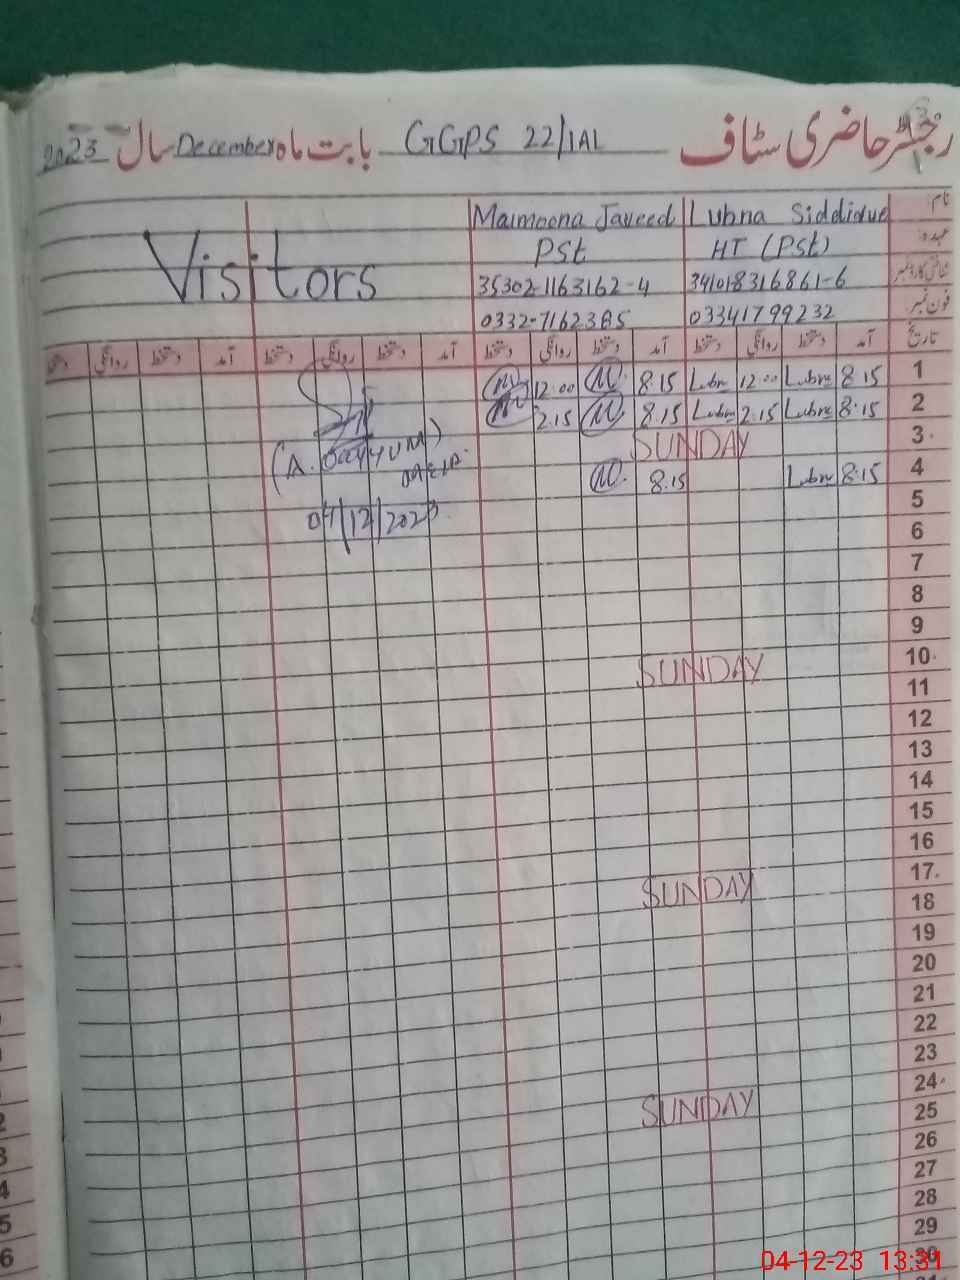 رجسٹر حاضری سٹاف GGPS 22/1AL بابت ماہ December سال 2023
نام Lubna Siddique Maimoona Javeed
عہدہ HT (PSt) PSt
شناختی کارڈ نمبر 341018316861-6 35302-1163162-4
فون نمبر 03341799232 0332-7162385
Visitors
تاریخ آمد دستخط روانگی دستخط آمد دستخط روانگی دستخط آمد دستخط روانگی دستخط آمد دستخط روانگی دستخط
1 8:15 Lubna 12:00 Lubna 8:15 12:00
2 8:15 Lubna 2:15 Lubna 8:15 2:15
3 SUNDAY
4 8:15 Lubna 8:15
(A. Qayyum)
5
04/12/2023
6
7
8
9
10 SUNDAY
11
12
13
14
15
16
17 SUNDAY
18
19
20
21
22
23
24 SUNDAY
25
26
27
28
29
30
04-12-23 13:31